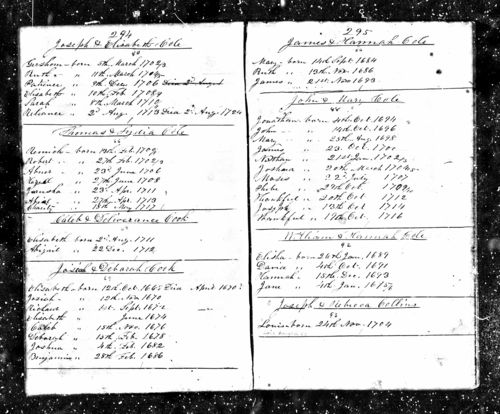 294
Joseph & Elizabeth Cole
Gershom - born 5th March 1702/3
Ruth " 11th March 1704/5
Patience " 9th Dec. 1706
Elizabeth " 10th Feb. 1708/9
Sarah - " 8th March 1710
Reliance - " 2d Aug. 1713 Died 2d Aug. 1724
Thomas & Lydia Cole
born 19th Feb.
Robert - " 27th Feb. 1702/3
Abner - " 23d June 1706
" 27th June 1708
" 23d Apr. 1711
" 27th Apr. 1713
1717
Caleb & Deliverance Cook
Elisabeth born 2d Aug. 1711
Abigail " 22d Dec. 1712
Josiah & Deborah Cook
Elisabeth - born 12th Oct. Died April 1670
Josiah - " 12th Nov. 1670
Richard " 1st Sept. 1672
Elisabeth " June 1674
Caleb " 15th Nov. 1676
Deborah " 15th Feb. 1678
Joshua " 4th Feb. 1682
Benjamin " 28th Feb. 1686
295
James & Hannah Cole
Mary - born 14th Sept. 1684
Ruth " 13th Nov. 1686
James " 21st Nov. 1693
John & Mary Cole
Jonathan - born 4th Oct. 1694
John - " 14th Oct. 1696
Mary - " 25th Aug. 1698
" 23d Oct. 1700
Nathan " 21st Jan. 1702/3
Joshua " 20th March 1704/5
Moses " 22d July 1707
Phebe " 29th Oct. 1709
Thankful " 20th Oct. 1712
Joseph " 13th Oct. 1714
Thankful " 19th Oct. 1716
William & Hannah Cole
Elisha - born 26th Jan. 1689
" 4th Oct. 1691
Hannah - " 15th Dec. 1693
Jane " 4th Jan.
Joseph & Rebecca Collins
born 24th Nov. 1704